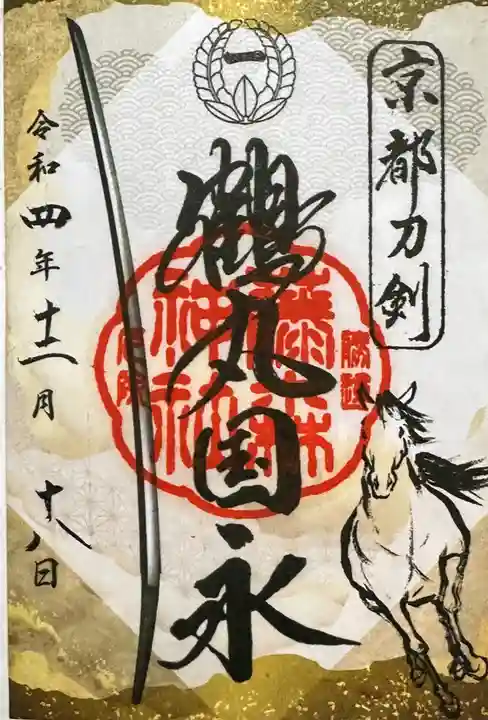 京都刀剣
一
鶴丸国永
藤森
神社
勝運
令和四年十二月十八日